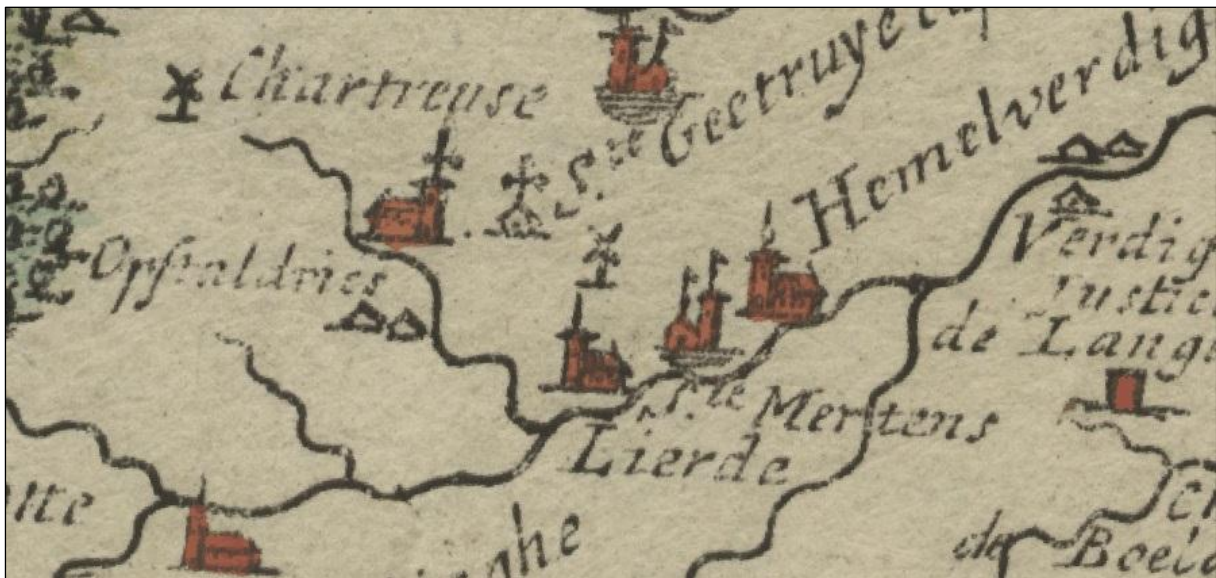 Chartreuse
S.te Geetruye
Hemelverdig
Opstaldries
Verdig
Justic
de Lang
S.te Mertens
Lierde
lte
inghe
de Boela